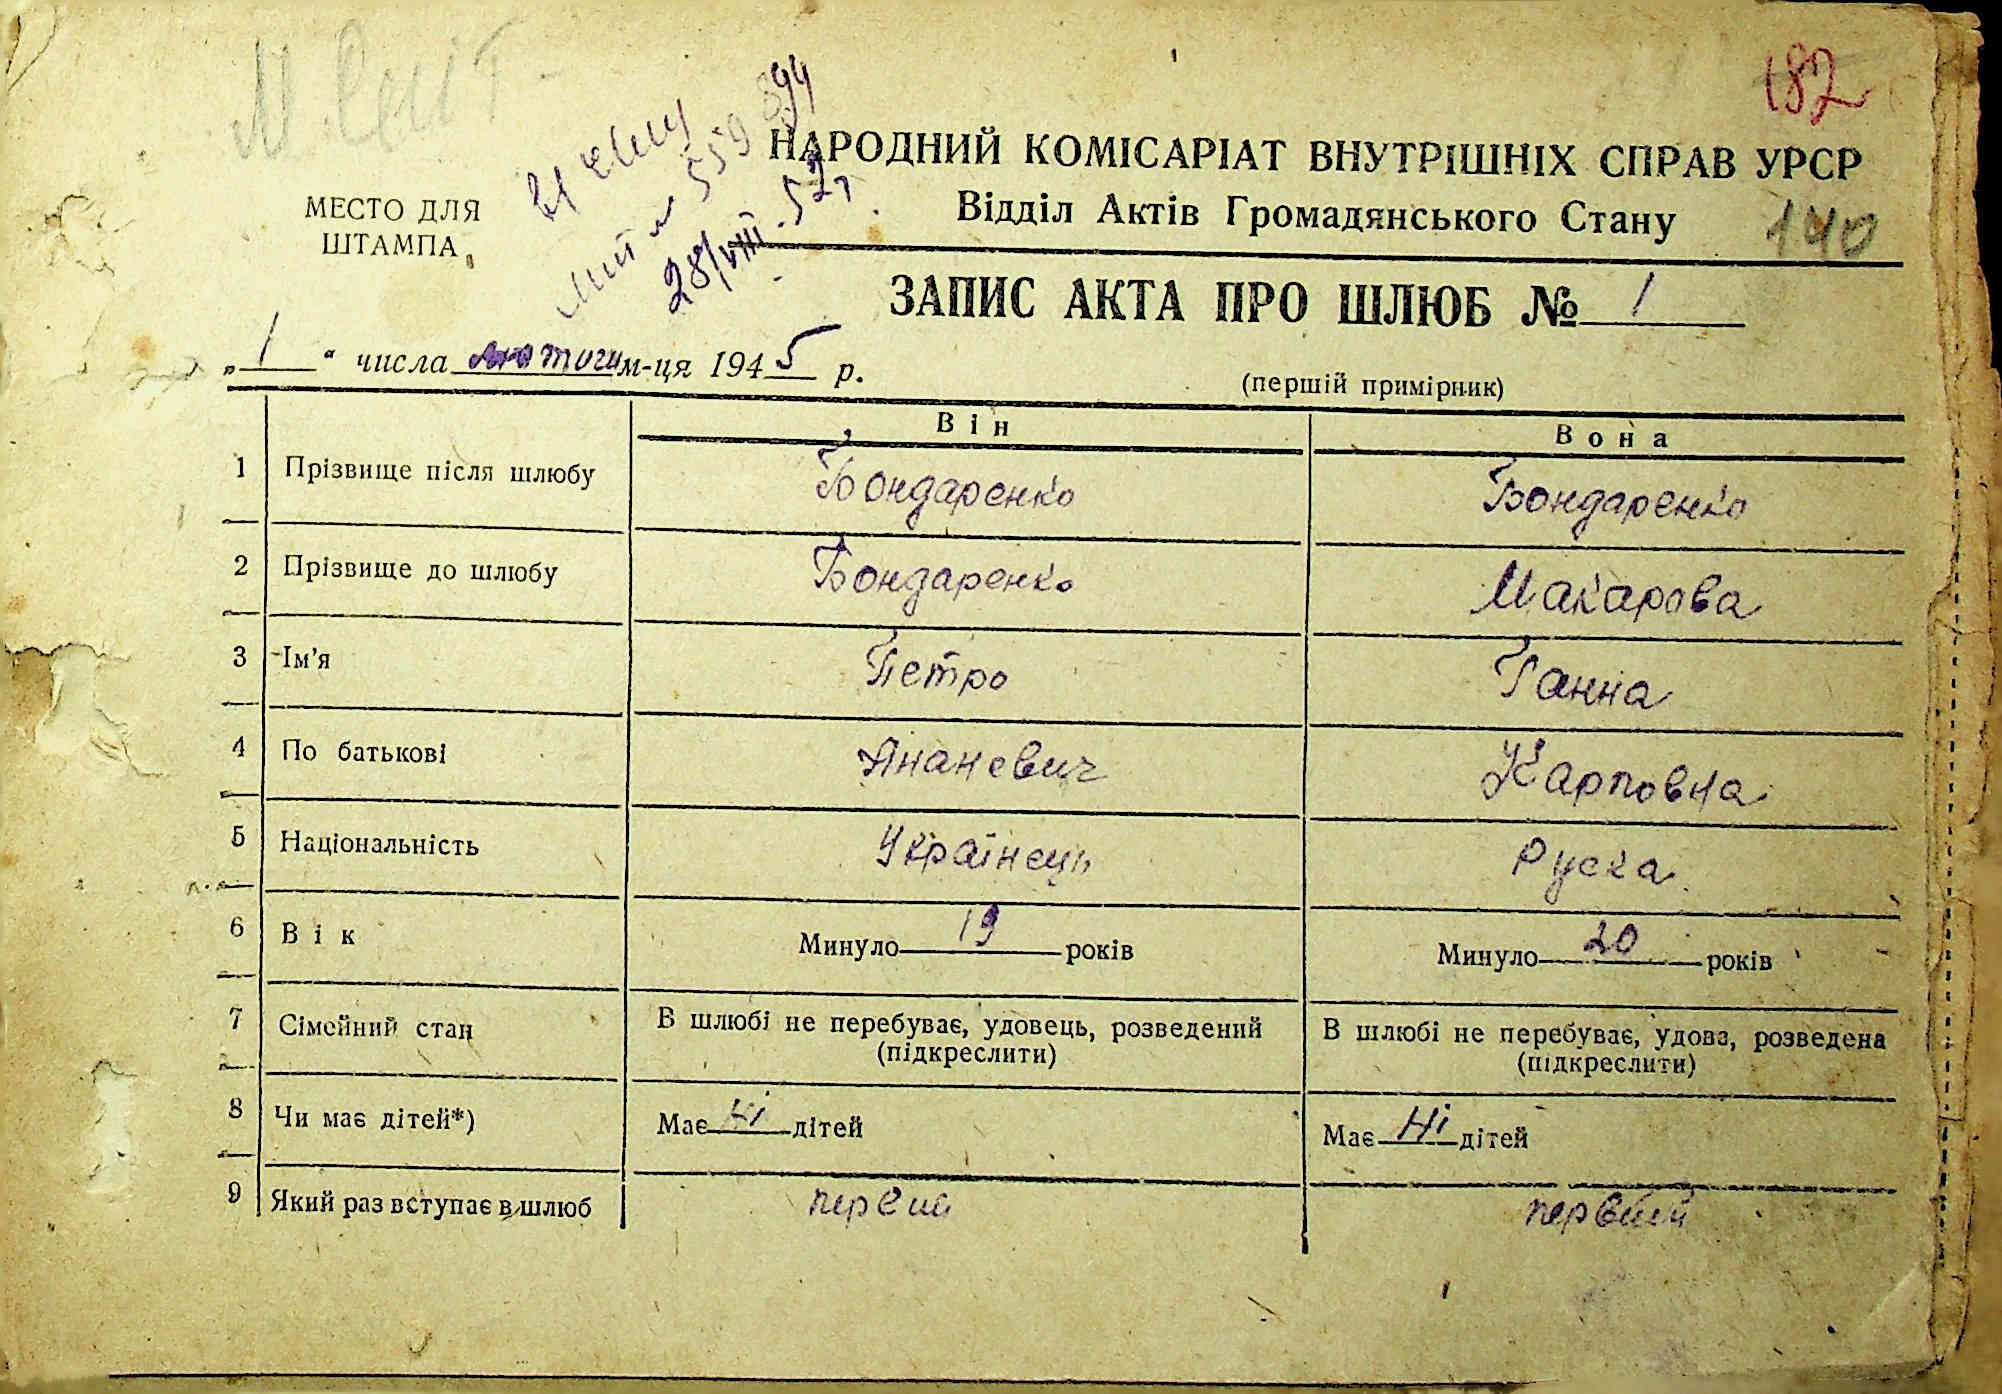 182
НАРОДНИЙ КОМІСАРІАТ ВНУТРІШНІХ СПРАВ УРСР
Відділ Актів Громадянського Стану
140
МЕСТО ДЛЯ
ШТАМПА
559894
28/VIII-52
ЗАПИС АКТА ПРО ШЛЮБ № 1
„1“ числа лютого м-ця 1945 р.
(першій примірник)
Він Вона
1 Прізвище після шлюбу Бондаренко Бондаренко
2 Прізвище до шлюбу Бондаренко Макарова
3 Ім'я Петро Ганна
4 По батькові Ананевич Карповна
5 Національність Українець Руска
6 Вік Минуло 19 років Минуло 20 років
7 Сімейний стан В шлюбі не перебуває, удовець, розведений В шлюбі не перебуває, удова, розведена
(підкреслити) (підкреслити)
8 Чи має дітей*) Має ні дітей Має ні дітей
9 Який раз вступає в шлюб первий первий